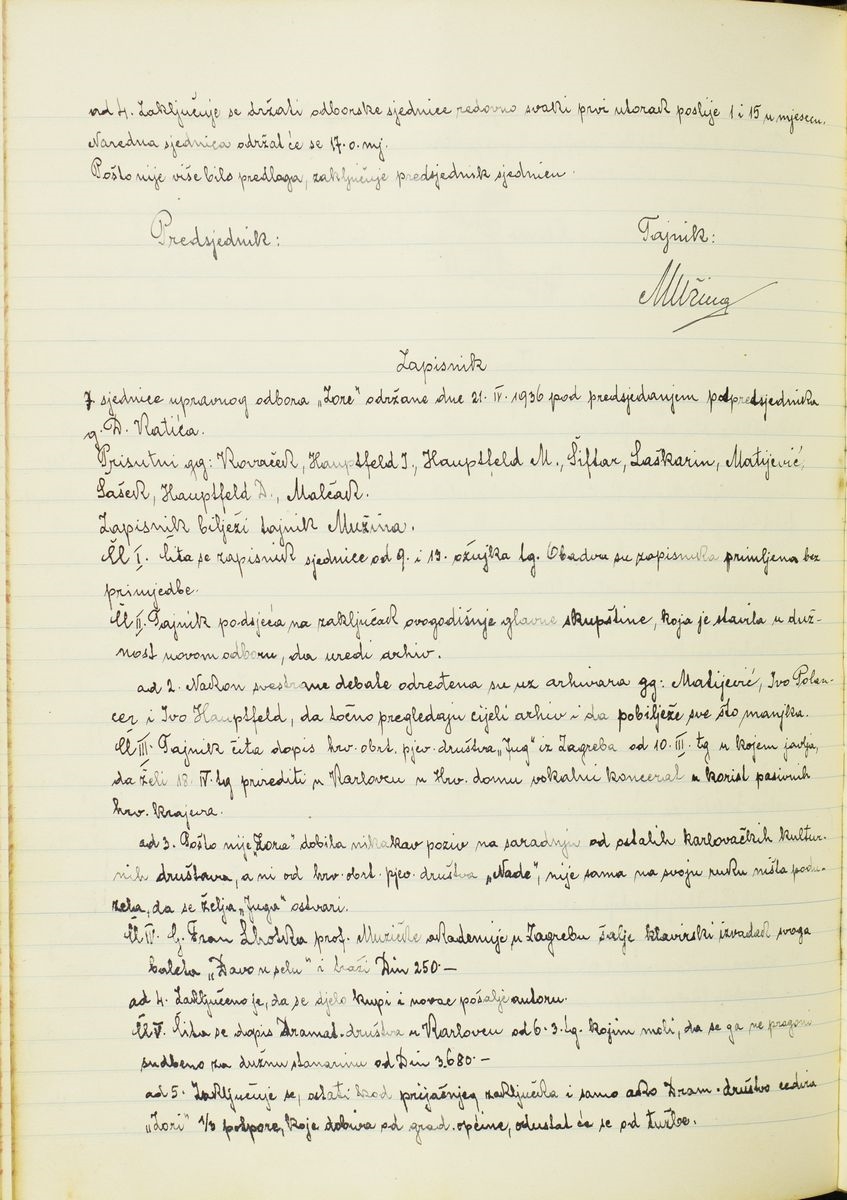 ad 4. Zaključuje se držati odborske sjednice redovno svaki prvi utorak poslije 1 i 15 u mjesecu.
Naredna sjednica održat će se 17. o. mj.
Pošto nije više bilo predlaga, zaključuje predsjednik sjednicu.
Predsjednik:
Tajnik:
MMužina
Zapisnik
7 sjednice upravnog odbora „Zore" održane dne 21. IV. 1936 pod predsjedanjem potpredsjednika
g. D. Katića.
Prisutni gg: Kovaček, Hauptfeld I., Hauptfeld M., Šiftar, Laškarin, Matijević,
Sašek, Hauptfeld D., Malčak.
Zapisnik bilježi tajnik Mužina.
Čl I. Čita se zapisnik sjednice od 9. i 13. ožujka tg. Obadva su zapisnika primljena bez
primjedbe.
Čl II. Tajnik podsjeća na zaključak ovogodišnje glavne skupštine, koja je stavila u duž-
nost novom odboru, da uredi arhiv.
ad 2. Nakon svestrane debate određena su uz arhivara gg: Matijević, Ivo Polan-
cer i Ivo Hauptfeld, da točno pregledaju cijeli arhiv i da pobilježe sve što manjka.
Čl III. Tajnik čita dopis hrv. obrt. pjev. društva „Jug" iz Zagreba od 10. III. tg u kojem javlja,
da želi 18. IV. tg prirediti u Karlovcu u Hrv. domu vokalni koncerat u korist pasivnih
hrv. krajeva.
ad 3. Pošto nije „Zora" dobila nikakav poziv na saradnju od ostalih karlovačkih kultur-
nih društava, a ni od hrv. obrt. pjev. društva „Nade", nije sama na svoju ruku ništa podu-
zela, da se želja „Juga" ostvari.
Čl IV. G. Fran Lhotka prof. Muzičke akademije u Zagrebu šalje klavirski izvadak svoga
baleta „Đavo u selu" i traži Din 250.—
ad 4. Zaključeno je, da se djelo kupi i novac pošalje autoru.
Čl V. Čita se dopis Dramat. društva u Karlovcu od 6. 3. tg. kojim moli, da se ga ne progoni
sudbeno za dužnu stanarinu od Din 3.680.—
ad 5. Zaključuje se, ostati kod prijašnjeg zaključka i samo ako Dram. društvo cedira
„Zori" 1/3 potpore, koje dobiva od grad. općine, odustat će se od tužbe.